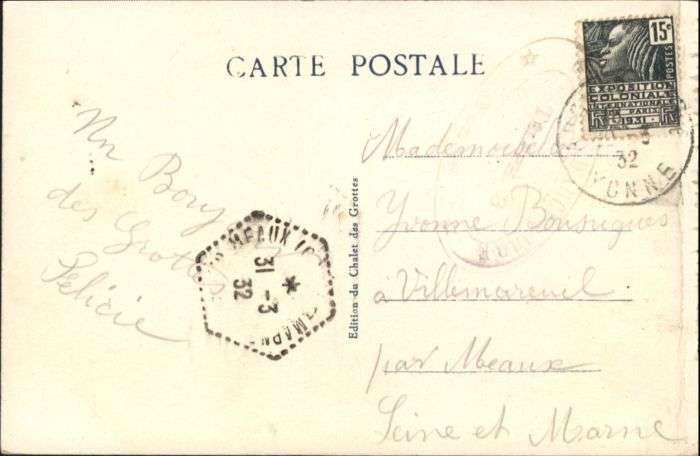 CARTE POSTALE
15c
POSTES
EXPOSITION
COLONIALE
INTERNATIONALE
PARIS
YONNE
32
Un Bony
des Grottes
Félicie
MEAUX
31 -3
32
MARNE
Edition du Chalet des Grottes
Mademoiselle
Yvonne Bonsigues
à Villemareuil
par Meaux
Seine et Marne